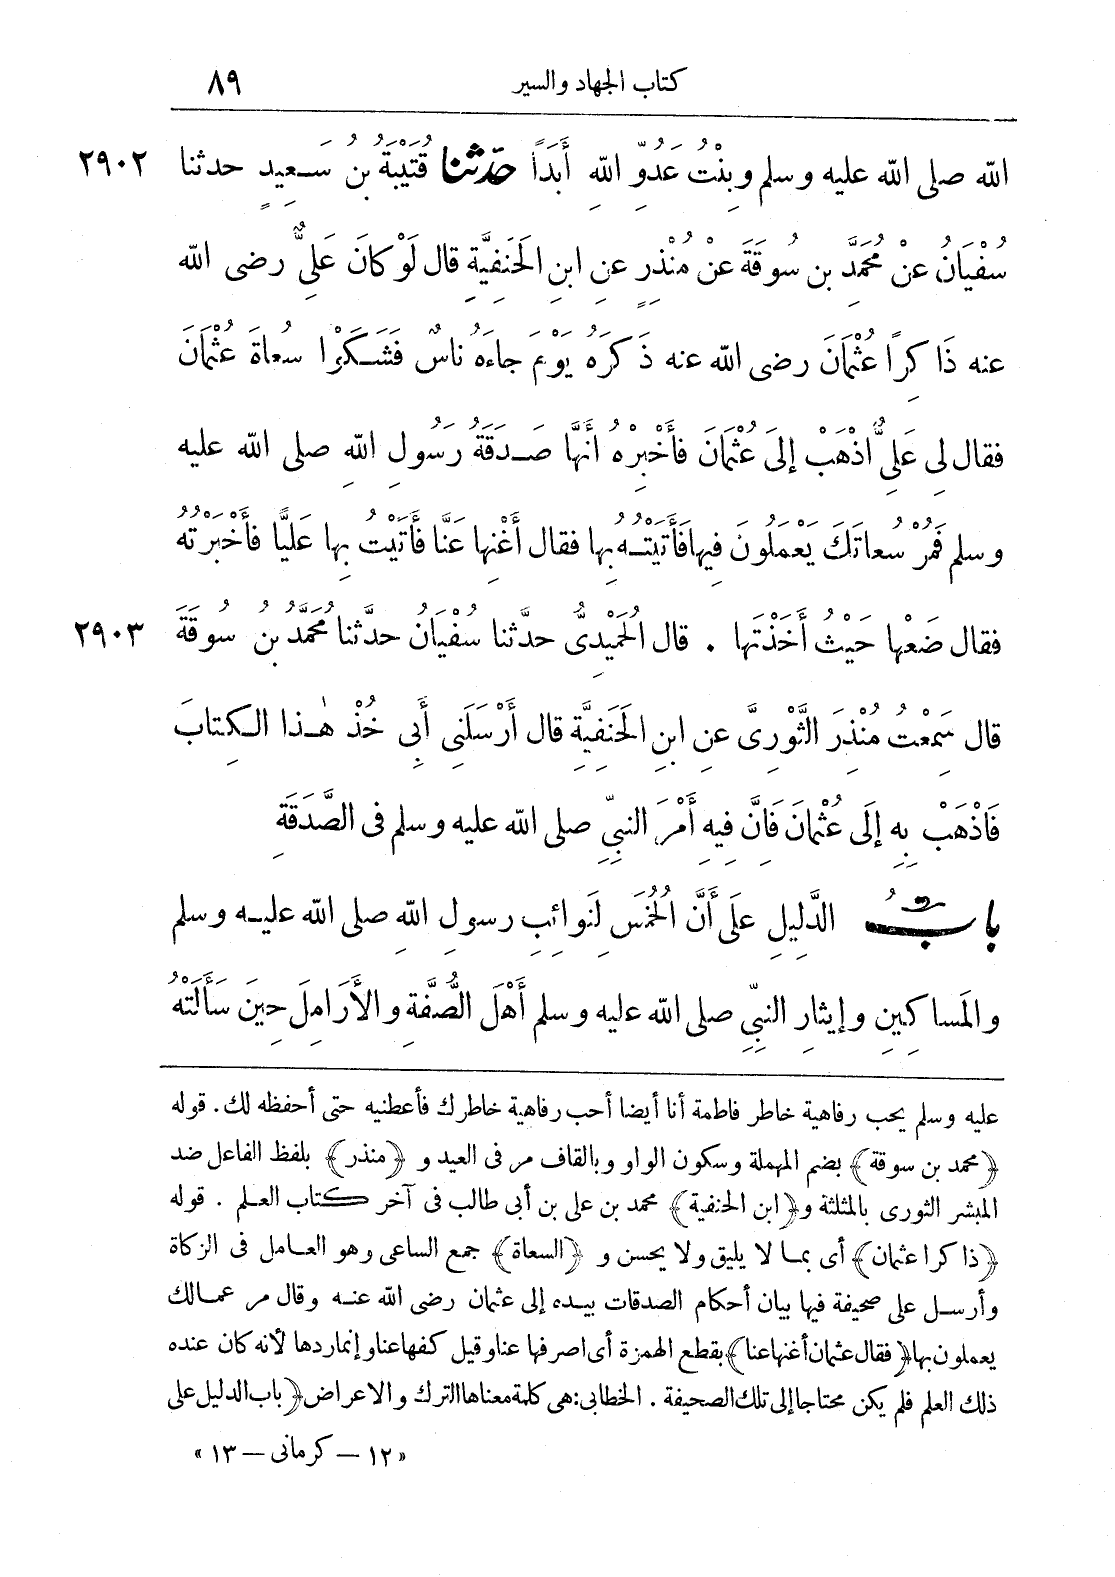 كتاب الجهاد والسير ٨٩
الله صلى الله عليه وسلم وبِنْتُ عَدُوِّ اللهِ أَبَداً حَدَّثنا قُتَيْبَةُ بنُ سَعِيدٍ حدثنا ٢٩٠٢
سُفْيَانُ عَنْ مُحَمَّدِ بنِ سُوقَةَ عَنْ مُنْذِرٍ عنِ ابنِ الحَنَفِيَّةِ قال لَوْ كانَ عَلِيٌّ رضى الله
عنه ذَاكِرًا عُثْمَانَ رضى الله عنه ذَكَرَهُ يَوْمَ جاءَهُ ناسٌ فَشَكَوْا سُعاةَ عُثْمَانَ
فقال لِى عَلِيٌّ اذْهَبْ إلَى عُثْمَانَ فَأَخْبِرْهُ أنَّها صَدَقَةُ رَسُولِ اللهِ صلى الله عليه
وسلم فَمُرْ سُعاتَكَ يَعْمَلُونَ فِيها فَأَتَيْتُهُ بِها فقال أَغْنِها عَنَّا فَأَتَيْتُ بِها عَلِيًّا فَأَخْبَرْتُهُ
فقال ضَعْها حَيْثُ أَخَذْتَها . قال الحُمَيْدِىُّ حدَّثنا سُفْيَانُ حدَّثنا مُحَمَّدُ بنُ سُوقَةَ ٢٩٠٣
قال سَمِعْتُ مُنْذِرَ الثَّوْرِىَّ عنِ ابنِ الحَنَفِيَّةِ قال أَرْسَلَنِى أَبِى خُذْ هٰذا الكِتابَ
فَاذْهَبْ بِهِ إلَى عُثْمَانَ فَانَّ فِيهِ أَمْرَ النبيِّ صلى الله عليه وسلم فى الصَّدَقَةِ
بابُ الدَّلِيلِ عَلَى أَنَّ الخُمُسَ لِنَوائِبِ رسولِ اللهِ صلى الله عليه وسلم
والمَساكِينِ وإيثارِ النبيِّ صلى الله عليه وسلم أَهْلَ الصُّفَّةِ والأَرَامِلَ حِينَ سَأَلَتْهُ
عليه وسلم يحب رفاهية خاطر فاطمة أنا أيضا أحب رفاهية خاطرك فأعطنيه حتى أحفظه لك. قوله
﴿محمد بن سوقة﴾ بضم المهملة وسكون الواو وبالقاف مر فى العيد و ﴿منذر﴾ بلفظ الفاعل ضد
المبشر الثورى بالمثلثة و﴿ابن الحنفية﴾ محمد بن على بن أبى طالب فى آخر كتاب العلم . قوله
﴿ذاكرا عثمان﴾ أى بما لا يليق ولا يحسن و ﴿السعاة﴾ جمع الساعى وهو العامل فى الزكاة
وأرسل على صحيفة فيها بيان أحكام الصدقات بيده إلى عثمان رضى الله عنه وقال مر عمالك
يعملون بها ﴿فقال عثمان أغنها عنا﴾ بقطع الهمزة أى اصرفها عنا وقيل كفها عنا وإنما ردها لأنه كان عنده
ذلك العلم فلم يكن محتاجا إلى تلك الصحيفة . الخطابى: هى كلمة معناها الترك والاعراض ﴿باب الدليل على
« ١٢ – كرمانى – ١٣ »